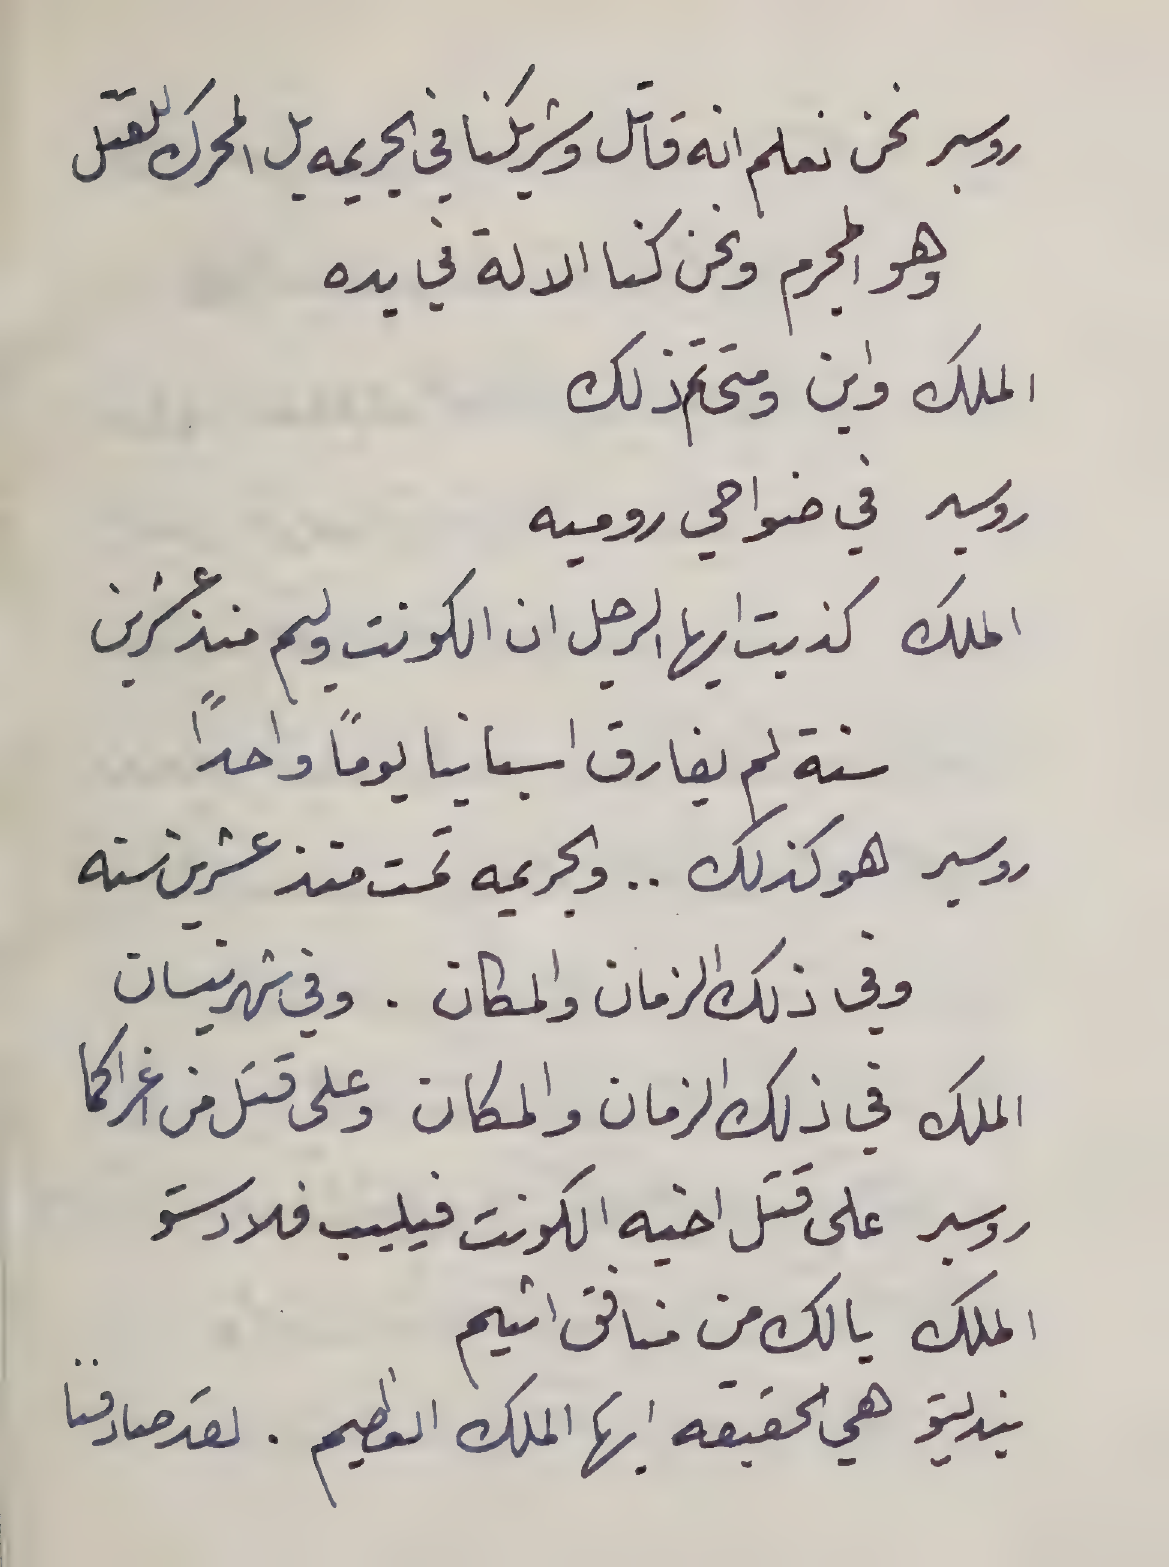 روبير نحن نعلم انه قاتل وشريكنا في الجريمه بل المحرك للقتل
وهو المجرم ونحن كنا الالة في يده
الملك واين ومتى تم ذلك
روبير في ضواحي روميه
الملك كذبت ايها الرجل ان الكونت وليم منذ عشرين
سنة لم يفارق اسبانيا يومًا واحدًا
روبير هو كذلك .. والجريمه تمت منذ عشرين سنه
وفي ذلك الزمان والمكان . وفي شهر نيسان
الملك في ذلك الزمان والمكان وعلى قتل من اغراكما
روبير على قتل اخيه الكونت فيليب فلادستو
الملك يالك من منافق اثيم
بنديتو هي الحقيقه ايها الملك العظيم . لقد صادفنا